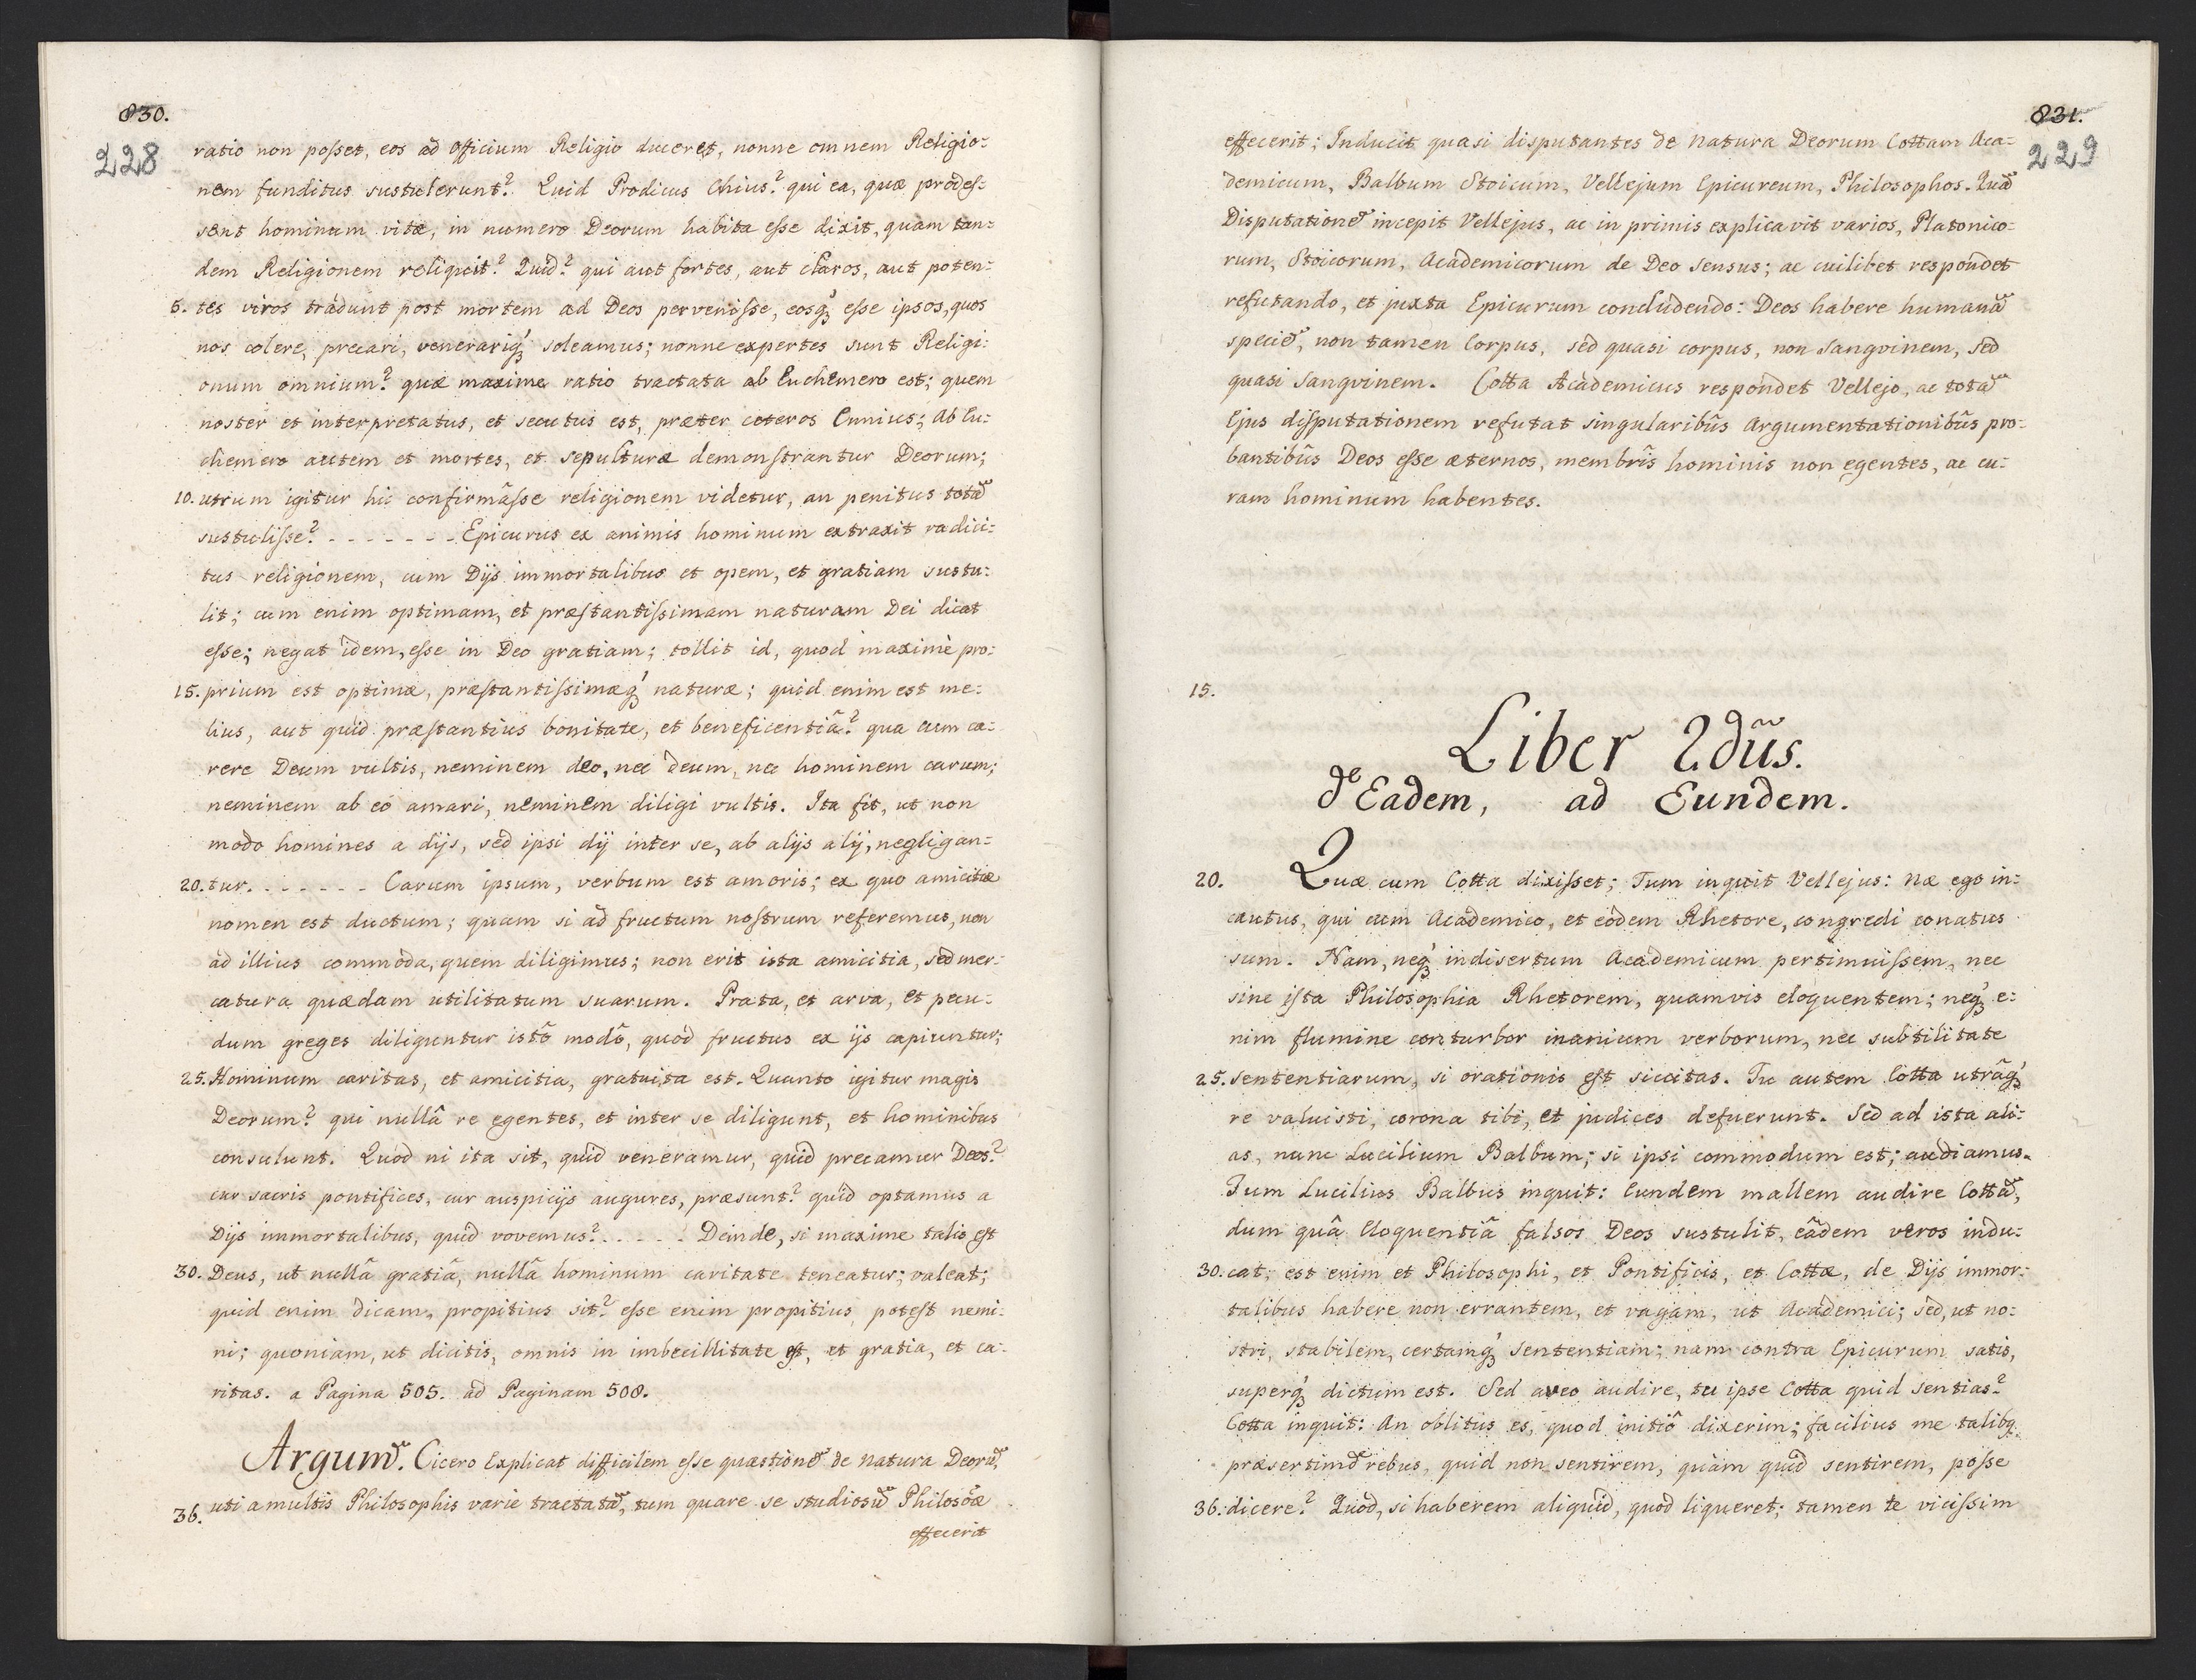 830.
228
ratio non posset, eos ad officium Religio duceret, nonne omnem Religio=
nem funditus sustulerunt? Quid Prodicus Chius? qui ea, quæ prodes=
sent hominum vitæ, in numero Deorum habita esse dixit, quam tan=
dem Religionem reliquit? Quid? qui aut fortes, aut claros, aut poten=
5. tes viros tradunt post mortem ad Deos pervenisse, eosq́ꝫ esse ipsos, quos
nos colere, precari, venerariq́ꝫ soleamus; nonne expertes sunt Religi=
onum omnium? quæ maxime ratio tractata ab Euchemero est; quem
noster et interpretatus, et secutus est, præter ceteros Ennius; Ab Eu=
chemero autem et mortes, et sepulturæ demonstrantur Deorum;
10. utrum igitur hic confirmâsse religionem videtur, an penitus totam̃
sustulisse? - - - - - - - Epicurus ex animis hominum extraxit radici=
tus religionem, cum Dijs immortalibus et opem, et gratiam sustu=
lit; cum enim optimam, et præstantissimam naturam Dei dicat
esse; negat idem, esse in Deo gratiam; tollit id, quod maximè pro=
15. prium est optimæ, præstantissimæq́ꝫ naturæ; quid enim est me=
lius, aut quid præstantius bonitate, et beneficentiâ? qua cum ca=
rere Deum vultis, neminem deo, nec deum, nec hominem carum;
neminem ab eo amari, neminem diligi vultis. Ita fit, ut non
modo homines a dijs, sed ipsi dij inter se, ab alijs alij, negligan=
20. tur. - - - - - - Carum ipsum, verbum est amoris; ex quo amicitiæ
nomen est ductum; quam si ad fructum nostrum referemus, non
ad illius commoda, quem diligimus; non erit ista amicitia, sed mer=
catura quædam utilitatum suarum. Prata, et arva, et pecu=
dum greges diliguntur istô modô, quod fructus ex ijs capiuntur;
25. Hominum caritas, et amicitia, gratuita est. Quanto igitur magis
Deorum? qui nullâ re egentes, et inter se diligunt, et hominibus
consulunt. Quod ni ita sit, quid veneramur, quid precamur Deos?
cur sacris pontifices, cur auspicijs augures, præsunt? quid optamus a
Dijs immortalibus, quid vovemus? - - - - - Deinde, si maxime talis est
30. Deus, ut nullâ gratiâ, nullâ hominum caritate teneatur; valeat;
quid enim dicam, propitius sit? esse enim propitius potest nemi=
ni; quoniam, ut dicitis, omnis in imbecillitate est, et gratia, et ca=
ritas. a Pagina 505. ad Paginam 508.
Argum̃. Cicero Explicat difficilem esse quæstionem̃ de natura Deorum̃,
36. uti a multis Philosophis varie tractatam̃, tum quare se studiosum̃ Philosõæ
effecerit
831.
229
effecerit; Inducit quasi disputantes de natura Deorum Cottam Aca=
demicum, Balbum Stoicum, Vellejum Epicureum, Philosophos. Quam̃
Disputationem̃ incepit Vellejus, ac in primis explicavit varios, Platonico=
rum, Stoicorum, Academicorum de Deo sensus; ac cuilibet respondet
refutando, et juxta Epicurum concludendo: Deos habere humanam̃
speciem̃, non tamen Corpus, sed quasi corpus, non Sangvinem, sed
quasi sangvinem. Cotta Academicus respondet Vellejo, ac totam̃
Ejus disputationem refutat singularibũs Argumentationibũs pro=
bantibũs Deos esse æternos, membrĩs hominis non egentes, ac cu=
ram hominum habentes.
15.
Liber 2dũs.
de Eadem, ad Eundem.
20. Quæ cum Cotta dixisset; Tum inquit Vellejus: Næ ego in=
cautus, qui cum Academico, et eodem Rhetore, congredi conatus
sum. Nam, neq́ꝫ indisertum Academicum pertimuissem, nec
sine ista Philosophia Rhetorem, quamvis eloquentem; neq́ꝫ e=
nim flumine conturbor inanium verborum, nec subtilitate
25. sententiarum, si orationis est siccitas. Tu autem Cotta utrâq́ꝫ
re valuisti, corona tibi, et judices defuerunt. Sed ad ista ali=
as, nunc Lucilium Balbum; si ipsi commodum est; audiamus.
Tum Lucilius Balbus inquit: Eundem mallem audire Cottam̃,
dum quâ Eloquentiâ falsos Deos sustulit, eâdem veros indu=
30. cat; est enim et Philosophi, et Pontificis, et Cottæ, de Dijs immor=
talibus habere non errantem, et vagam, ut Academici; sed, ut no=
stri, stabilem, certamq́ꝫ sententiam; nam contra Epicurum satis,
superq́ꝫ dictum est. Sed aveo audire, tu ipse Cotta quid sentias?
Cotta inquit: An oblitus es, quod initiô dixerim; facilius me talibꝫ
præsertim rebus, quid non sentirem, quàm quid sentirem, posse
36. dicere? Quod, si haberem aliquid, quod liqueret; tamen te vicissim